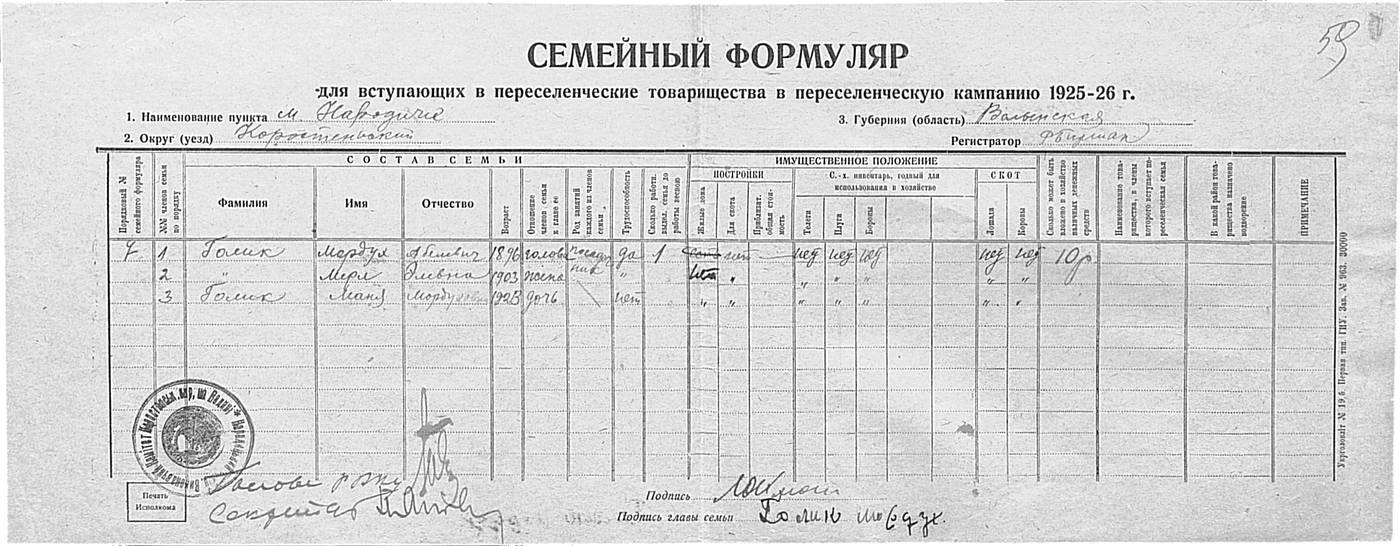 59
СЕМЕЙНЫЙ ФОРМУЛЯР
для вступающих в переселенческие товарищества в переселенческую кампанию 1925-26 г.
1. Наименование пункта м. Народичи
3. Губерния (область) Волынская
2. Округ (уезд) Коростеньский
Регистратор
СОСТАВ СЕМЬИ
ИМУЩЕСТВЕННОЕ ПОЛОЖЕНИЕ
Порядковый № семейного формуляра
№№ членов семьи по порядку
Фамилия
Имя
Отчество
Возраст
Отношение членов семьи к главе ее
Род занятий каждого из членов семьи
Трудоспособность
Сколько работн. выдел. семья до работы весною
ПОСТРОЙКИ
Жилые дома
Для скота
Приблизит. общая стоимость
С.-х. инвентарь, годный для использования в хозяйстве
Телеги
Плуга
Бороны
СКОТ
Лошади
Коровы
Сколько может быть вложено в хозяйство наличных денежных средств
Наименование товарищества, в члены которого вступает переселенческая семья
В какой район товарищества назначено водворение
ПРИМЕЧАНИЕ
7 1 Голик Мордух Абелевич 1896 голова да 1 нет нет нет нет нет нет 10р
2 " Мерл Элевна 1903 жена " нет " " " " " "
3 Голик Маня Мордуховна 1923 дочь нет " " " " " " "
Укрголовліт № 19,6 Первая тип. ГИУ. Зак. № 963. 30000
Печать Исполкома
Голова РВК
Секретар
Подпись
Подпись главы семьи Голик Мордух.